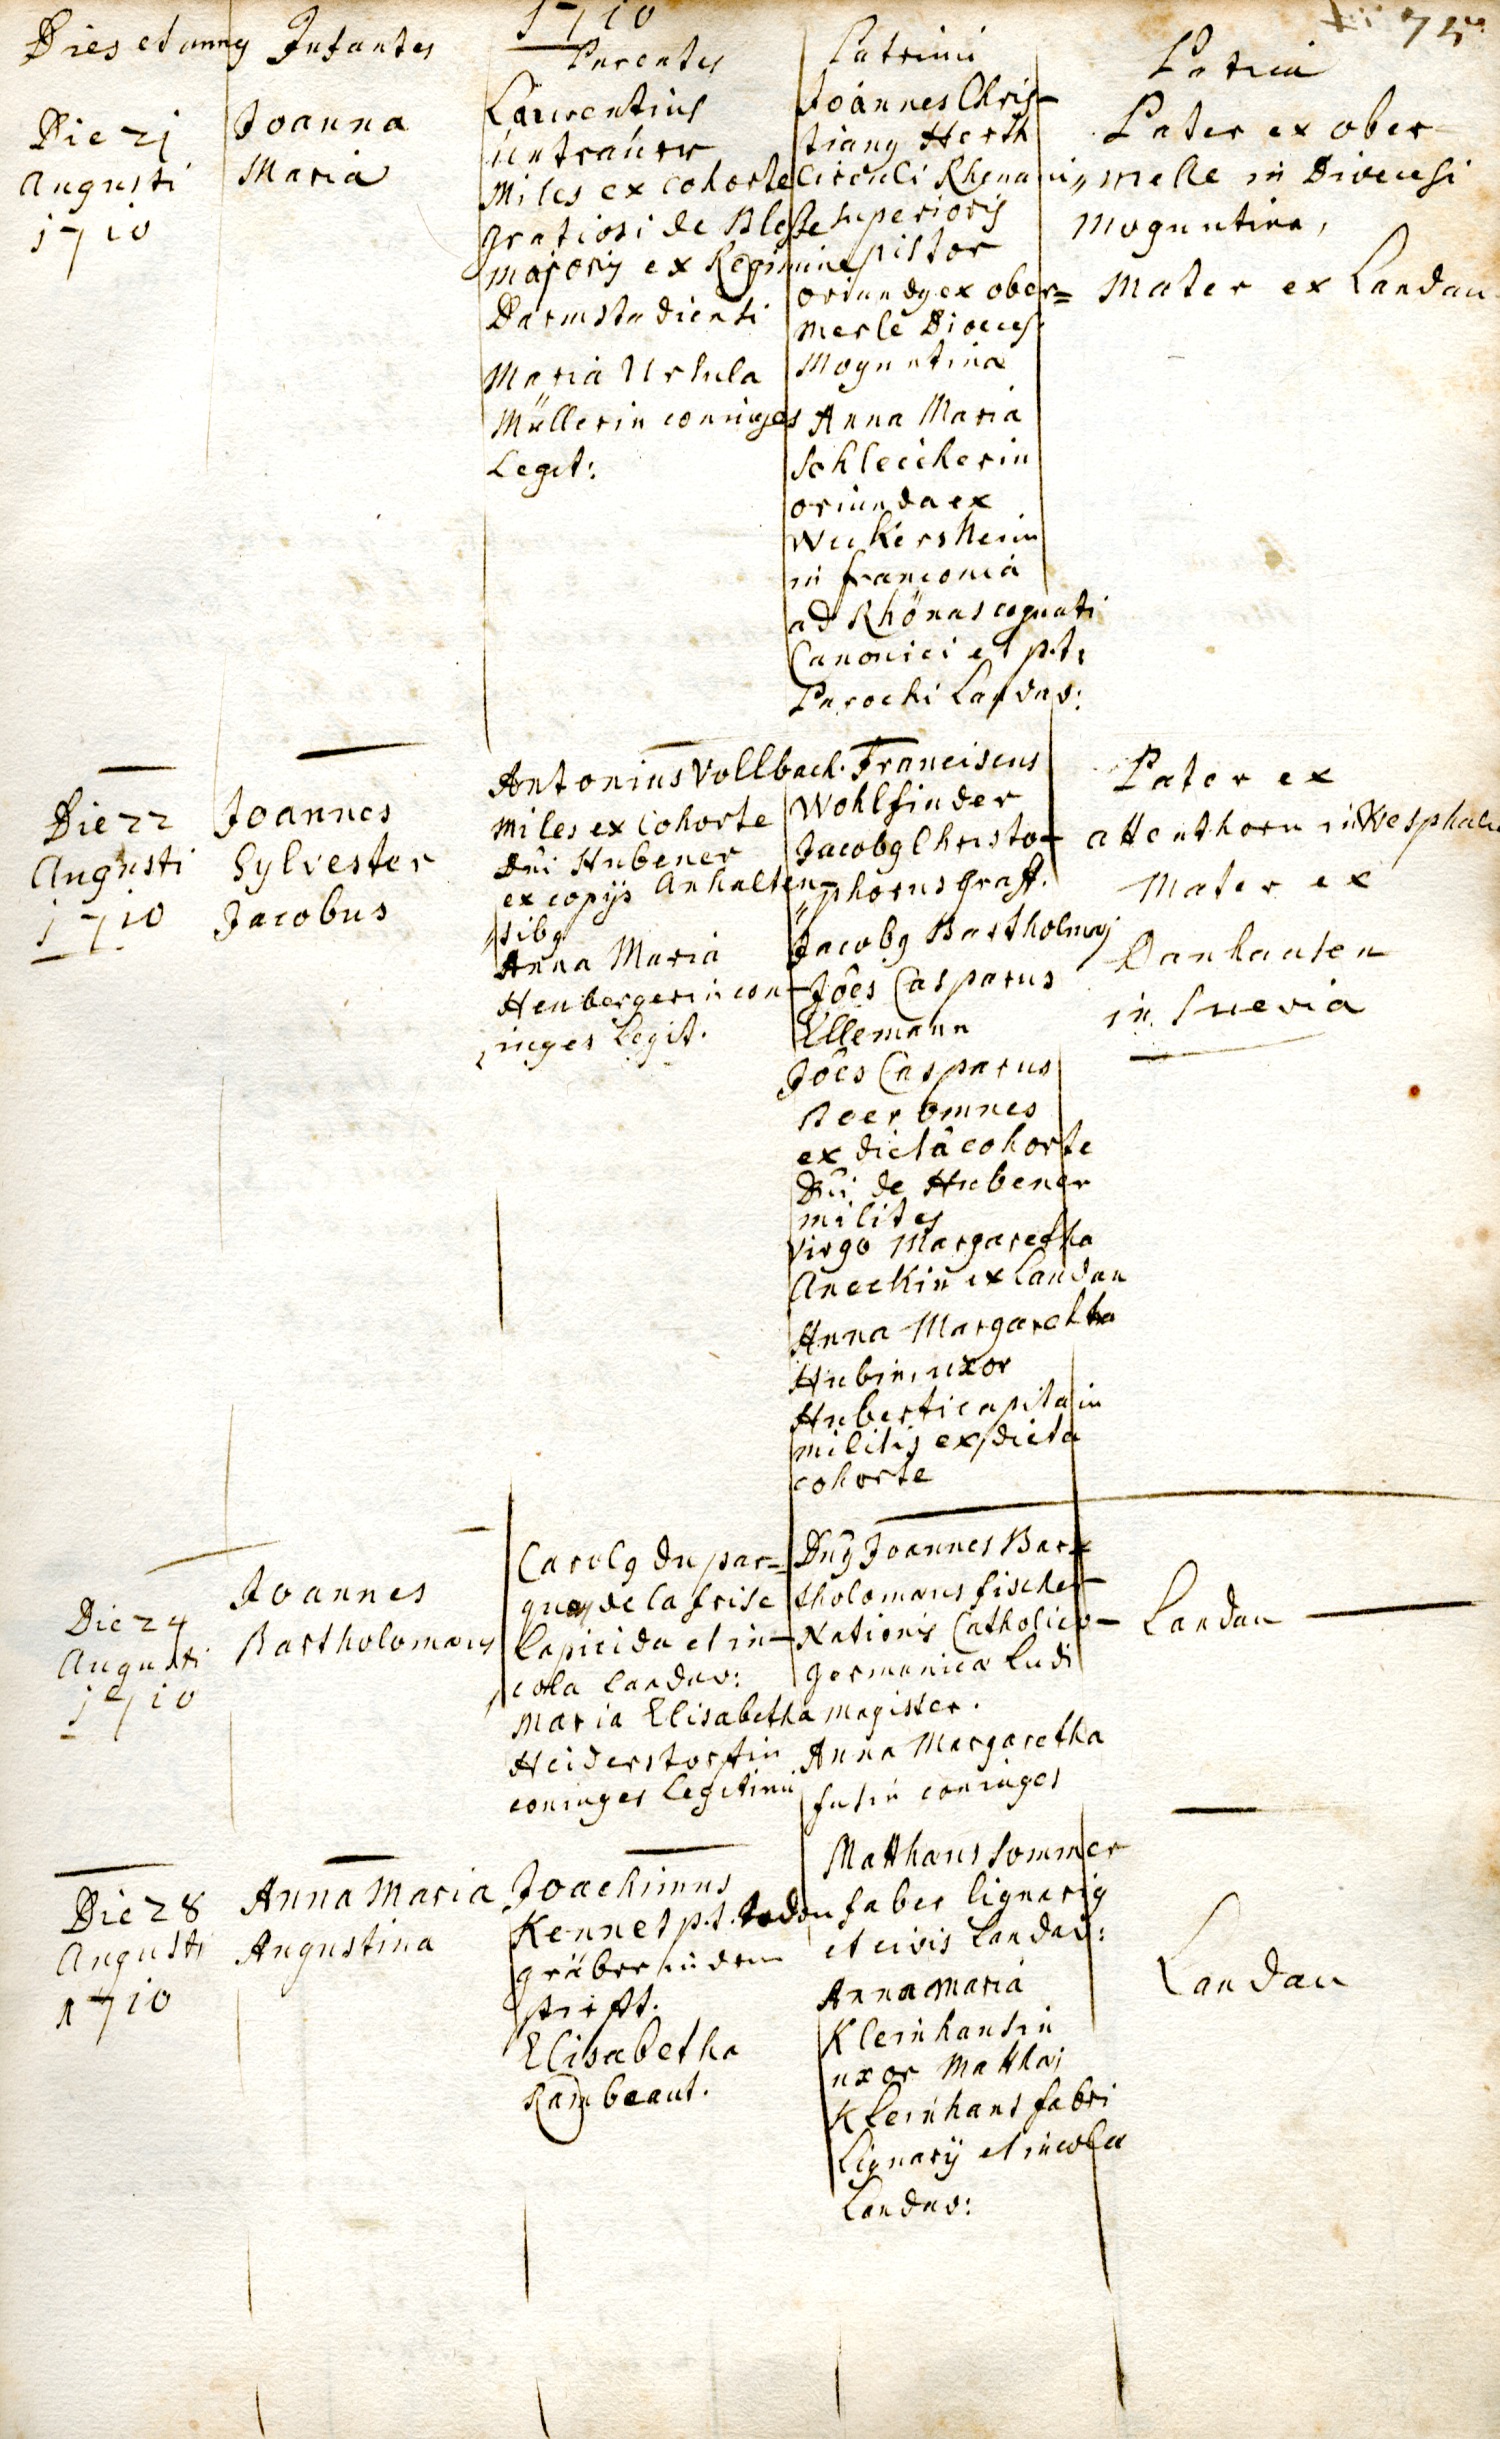 1710
75
Dies et annus
Infantes
Parentes
Patrini
Patria
Die 21
Augusti
1710
Joanna
Maria
Laurentius
Untrauer
Miles ex cohorte
gratiosi de
majoris ex Regimine
Darmstadiensi
Maria Ursula
Müllerin coniuges
Legit:
Joannes Chris-
tianus Herth
circuli Rhenani
superioris
pistor
oriundus ex ober=
merle Dioeces:
Moguntina
Anna Maria
Schleicherin
oriunda ex
Weikersheim
in franconia
ad Rhönas cognati
Canonici et p.t.
Parochi Landav:
Pater ex ober
melle in Dioecesi
Moguntina,
Mater ex Landau
Die 22
Augusti
1710
Joannes
Sylvester
Jacobus
Antonius Vollbach.
Miles ex Cohorte
Dni Hubener
ex copijs Anhalten-
sibus
Anna Maria
Henbergerin con-
iuges Legit.
Franciscus
Wohlfinder
Jacobus Christo-
phorus Graff.
Jacobus Bartholmaj
Jôes Casparus
Ellemann
Jôes Casparus
Boer omnes
ex dictâ cohorte
Dni de Hubener
milites
Virgo Margaretha
Aneckin ex Landau
Anna Margaretha
Hubin, uxor
Huberti capitain
militis ex dicta
cohorte
Pater ex
attenthorn in Wesphalia
Mater ex
Danhausen
in Suevia
Die 24
Augusti
1710
Joannes
Bartholomaeus
Carolus du par=
quay de la frise
Lapicida et in-
cola Landav:
Maria Elisabetha
Heiderstorffin
coniuges Legitimi
Dnus Joannes Bar
tholomaeus fischer
Nationis Catholico-
germanicae Ludi
magister.
Anna Margaretha
fusin coniuges
Landau
Die 28
Augusti
1710
Anna Maria
Augustina
Joachimus
Kennel p.t. todten
gräber in dem
stifft.
Elisabetha
Rambeaut.
Matthaeus Sommer
faber lignarius
et civis Landav:
Anna Maria
Kleinhansin
uxor Matthaei
Kleinhans fabri
Lignarij et incolae
Landav:
Landau